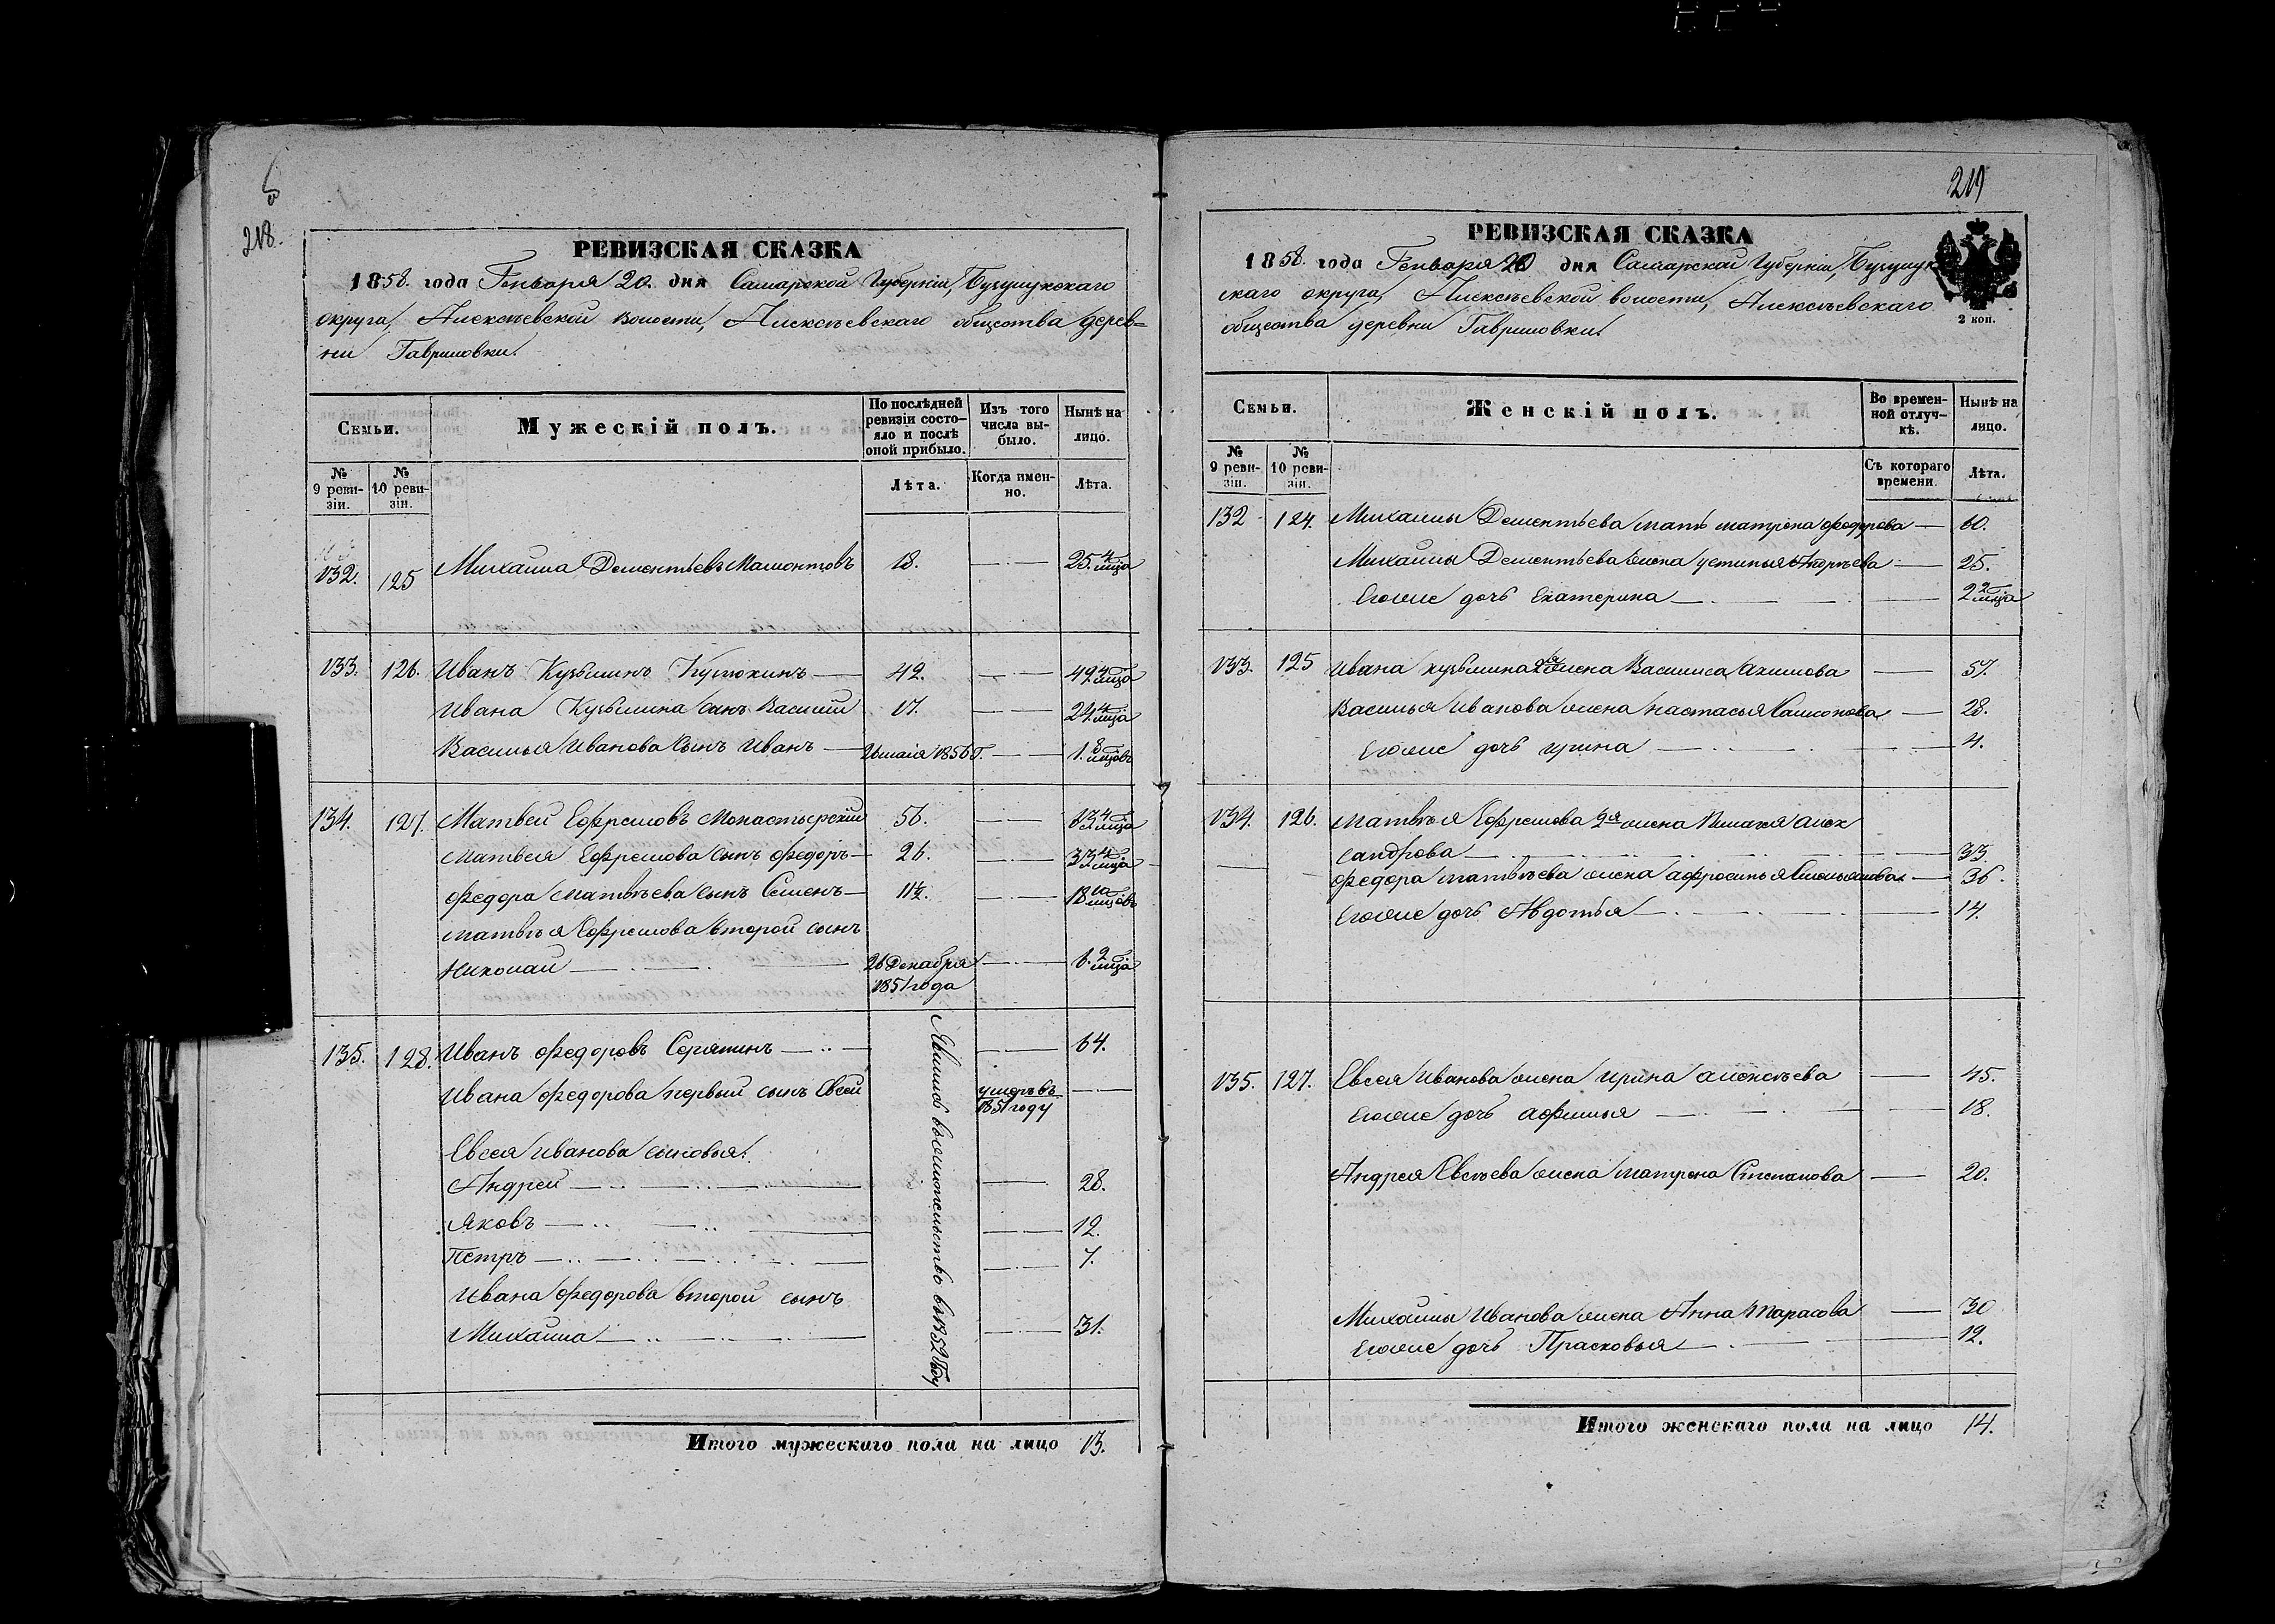 218.
РЕВИЗСКАЯ СКАЗКА
1858. года Генваря 20. дня Самарской Губерніи, Бузулукскаго
округа, Алексѣевской волости, Алексѣевскаго общества дерев=
ни Гавриловки.
Семьи.
Мужескій полъ.
По послѣдней ревизіи состояло и послѣ оной прибыло.
Изъ того числа выбыло.
Нынѣ на лицо.
№ 9 ревизіи.
№ 10 ревизіи.
Лѣта.
Когда именно.
Лѣта.
132. 125 Михаила Дементьевъ Мамонтовъ 18. 25. 4 мца
133. 126. Иванъ Кузьминъ 42. 49. 4 мца
Ивана Кузьмина сынъ Василій 17. 24. 4 мца
Василья Иванова сынъ Иванъ 26 маія 1856 г. 1. 8 мцовъ
134. 127. Матвей Ефремовъ Монастырскій 56. 63. 4 мца
Матвея Ефремова сынъ Федоръ 26. 33. 4 мца
Федора Матвѣева сынъ Семенъ 11½. 18. 10 мцовъ
Матвѣя Ефремова второй сынъ
Николай 26 Декабря 1851 года 6. 2 мца
135. 128. Иванъ Федоровъ 64.
Ивана Федорова первый сынъ Евсей умеръ въ 1851 году
Евсея Иванова сыновья:
Андрей 28.
Яковъ 12.
Петръ 7.
Ивана Федорова второй сынъ
Михаила 31.
въ 1852 году
Итого мужескаго пола на лицо 13.
219
РЕВИЗСКАЯ СКАЗКА
1858. года Генваря 20 дня Самарской Губерніи, Бузулук
скаго округа, Алексѣевской волости, Алексѣевскаго
общества деревни Гавриловки.
2 коп.
Семьи.
Женскій полъ.
Во временной отлучкѣ.
Нынѣ на лицо.
№ 9 ревизіи.
№ 10 ревизіи.
Съ котораго времени.
Лѣта.
132 124. Михаилы Дементьева мать Матрена Федорова 60.
Михаилы Дементьева жена Устинья Андреева 25.
Егоже дочь Екатерина 2 2 мца
133. 125 Ивана Кузьмина 2я жена Василиса Акимова 57.
Василья Иванова жена Настасья Самсонова 28.
Егоже дочь Ирина 4.
134. 126. Матвѣя Ефремова 2я жена Пелагея Алек
сандрова 33.
Федора Матвѣева жена Афросинья 36.
Егоже дочь Авдотья 14.
135. 127. Евсея Иванова жена Ирина Алексѣева 45.
Егоже дочь Афимья 18.
Андрея Евсѣева жена Матрена Степанова 20.
Михайлы Иванова жена Анна Тарасова 30
Егоже дочь Прасковья 12.
Итого женскаго пола на лицо 14.